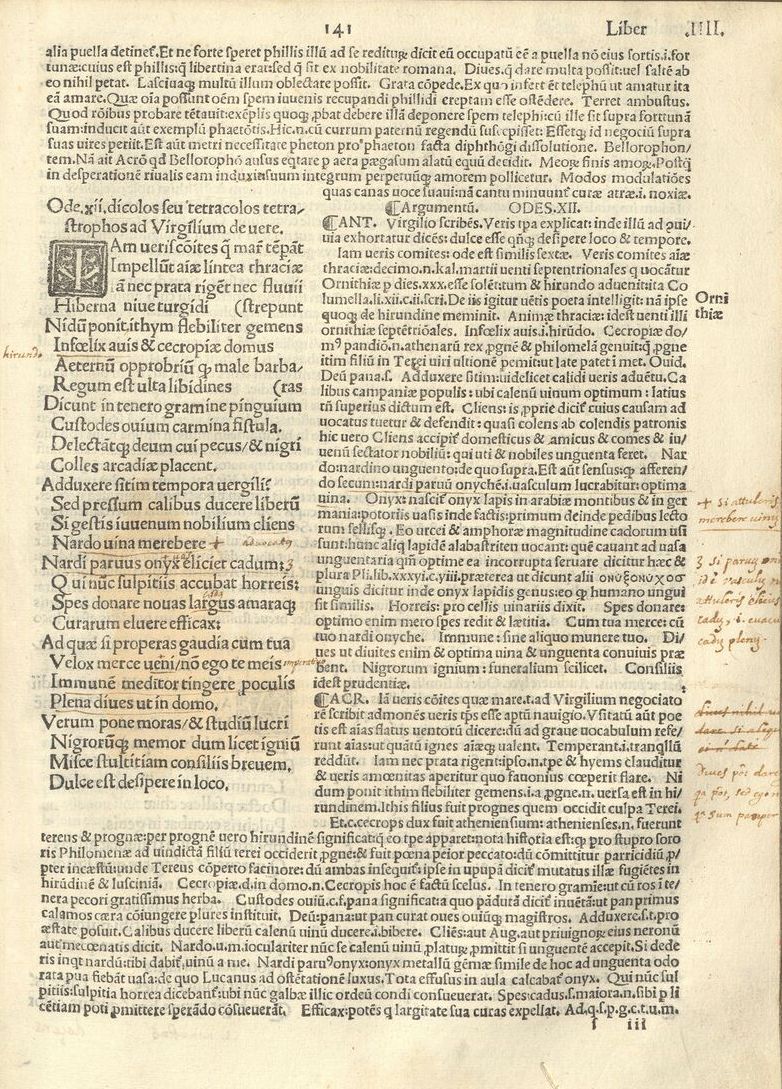 141 Liber .IIII.
alia puella detineſ. Et ne forte speret phillis illū ad se redituꝝ dicit eū occupatū eē a puella nō eius sortis.i.for
tunæ:cuius est phillis:q̄ libertina erat:sed q̄ sit ex nobilitate romana. Diues.q̄ dare multa possit:uel saltē ab
eo nihil petat. Lasciuaq; multū illum oblectare possit. Grata cōpede.Ex quo infert ēt telephū ut amatur ita
eā amare.Quæ oīa possunt oēm spem iuuenis recupandi phillidi ereptam esse ostēdere. Terret ambustus.
Quod rōibus probare tētauit:exēplis quoq; ꝓbat debere illā deponere spem telephi:cū ille sit supra fortunā
suam:inducit aūt exemplū phaetōtis.Hic.n.cū currum paternū regendū suscepisset: Essetq; id negociū supra
suas uires periit.Est aūt metri necessitate pheton pro phaeton facta diphthōgi dissolutione. Bellorophon/
tem.Nā ait Acrō qd Bellorophō ausus eqtare p aera pægasum alatū equū decidit. Meoꝝ finis amoꝝ.Postq̄
in desperationem riualis eam induxit:suum integrum perpetuūq; amorem pollicetur. Modos modulatiōes
quas canas uoce suaui:nā cantu minuunt curæ atræ.i.noxiæ.
Ode.xii.dicolos seu tetracolos tetra/
strophos ad Virgilium de uere.
IAm ueris cōites q̄ mar̄ tēp̄āt
Impellūt aiæ lintea thraciæ
iā nec prata rigēt nec fluuii
Hiberna niue turgidi (strepunt
Nidū ponit.ithym flebiliter gemens
Infœlix auis & cecropiæ domus
Aeternū opprobriū q; male barba/
Regum est ulta libidines (ras
Dicunt in tenero gramine pinguium
Custodes ouium carmina fistula.
Delectātq; deum cui pecus/& nigri
Colles arcadiæ placent.
Adduxere sitim tempora uergili:
Sed pressum calibus ducere liberū
Si gestis iuuenum nobilium cliens
Nardo uina merebere
Nardi paruus onyx eliciet cadum:
Qui nūc sulpitiis accubat horreis:
Spes donare nouas largus amaraq;
Curarum eluere efficax:
Ad quæ si properas gaudia cum tua
Velox merce ueni/nō ego te meis
Immunē meditor tingere poculis
Plena diues ut in domo.
Verum pone moras/& studiū lucri
Nigrorūq; memor dum licet igniū
Misce stultitiam consiliis breuem.
Dulce est desipere in loco.
hirundo
aduocatus
¶Argumentū. ODES.XII.
¶ANT. Virgilio scribēs.Veris tpa explicat: inde illū ad qui/
uia exhortatur dicēs: dulce esse qñq; desipere loco & tempore.
Iam ueris comites: ode est similis sextæ. Veris comites aiæ
thraciæ:decimo.n.kal.martii uenti septentrionales q uocātur
Ornithiæ p dies.xxx.esse solēt:tum & hirundo aduenit:ita Co
lumella.li.xii.c.ii.scri.De iis igitur uētis poeta intelligit: nā ipse
quoq; de hirundine meminit. Animæ thraciæ: idest uenti illi
ornithiæ septētriōales. Infœlix auis.i.hirūdo. Cecropiæ do/
mꝰ pandiō.n.athenarū rex ꝓgnē & philomelā genuit:q̄ ꝓgne
itim filiū in Terei uiri ultionē pemit:ut late patet i met. Ouid.
Deū pana.s. Adduxere sitim:uidelicet calidi ueris aduētu.Ca
libus campaniæ populis : ubi calenū uinum optimum : latius
tñ superius dictum est. Cliens: is ꝓprie dicit cuius causam ad
uocatus tuetur & defendit: quasi colens ab colendis patronis
hic uero Cliens accipit domesticus & amicus & comes & iu/
uenū sectator nobiliū: qui uti & nobiles unguenta feret. Nar
do:nardino unguento: de quo supra.Est aūt sensus:q afferen/
do secum:nardi paruū onychē.i.uasculum lucrabitur: optima
uina. Onyx: nascit onyx lapis in arabiæ montibus & in ger
mania:potoriis uasis inde factis:primum deinde pedibus lecto
rum sellisq;. Eo urcei & amphoræ magnitudine cadorum usi
sunt:hunc aliq lapidē alabastriten uocant: quē cauant ad uasa
unguentaria qm̄ optime ea incorrupta seruare dicitur hæc &
plura Pli.lib.xxxvi.c.viii.præterea ut dicunt alii ονυξονυχοσ
unguis dicitur inde onyx lapidis genus:eo q humano ungui
sit similis. Horreis: pro cellis uinariis dixit. Spes donare:
optimo enim mero spes redit & lætitia. Cum tua merce: cū
tuo nardi onyche. Immune : sine aliquo munere tuo. Di/
ues ut diuites enim & optima uina & unguenta conuiuis præ
bent. Nigrorum ignium : funeralium scilicet. Consiliis
idest prudentiæ.
¶ACR. Iā ueris cōites quæ mare.t.ad Virgilium negociato
rē scribit admonēs ueris tp̄s esse aptū nauigio.Vsitatū aūt poe
tis est aias flatus uentorū dicere:dū ad graue uocabulum refe/
runt aias:ut quātū ignes aiæq; ualent. Temperant.i.tranqllū
reddūt. Iam nec prata rigent:ipso.n.tpe & hyems clauditur
& ueris amœnitas aperitur quo fauonius cœperit flare. Ni
dum ponit ithim flebiliter gemens.i.a ꝓgne.n. uersa est in hi/
rundinem.Ithis filius fuit prognes quem occidit culpa Terei.
Et.c.cecrops dux fuit atheniensium: athenienses.n. fuerunt
Orni
thiæ
terens & prognæ:per prognē uero hirundinē significat:q eo tpe apparet:nota historia est:q pro stupro soro
ris Philomenæ ad uindictā filiū terei occiderit ꝓgne:& fuit pœna peior peccato:dū cōmittitur parricidiū ꝓ/
pter incæstū:unde Tereus cōperto facinore:dū ambas insequit:ipse in upupā dicit mutatus illæ fugiētes in
hirūdinē & lusciniā. Cecropiæ.d.in domo.n.Cecropis hoc ē factū scelus. In tenero gramīe:ut cū ros i te/
nera pecori gratissimus herba. Custodes ouiū.c.f.pana significat:a quo pādurā dicit inuētā:ut pan primus
calamos cæra cōiungere plures instituit. Deū:pana:ut pan curat oues ouiūq; magistros. Adduxere.s.t.pro
æstate posuit.Calibus ducere liberū calenū uinū ducere.i.bibere. Cliēs:aut Aug.aut priuignoꝝ eius neronū
aut mecœnatis dicit. Nardo.u.m.ioculariter nūc se calenū uinū ꝓlatuꝝ ꝓmittit si unguentē accepit.Si dede
ris inqt nardū:tibi dabit uinū a me. Nardi paruꝰonyx:onyx metallū gēmæ simile de hoc ad unguenta odo
rata pua fiebāt uasa:de quo Lucanus ad ostētationē luxus.Tota effusus in aula calcabat onyx. Qui nūc sul
pitiis:sulpitia horrea dicebant:ubi nūc galbæ illic ordeū condi consueuerat. Spes:cadus.s.maiora.n.sibi p li
cētiam poti ꝓmittere sperādo cōsueuerāt. Efficax:potēs q largitate sua curas expellat. Ad.q.s.p.g.c.t.u.m.
f iii